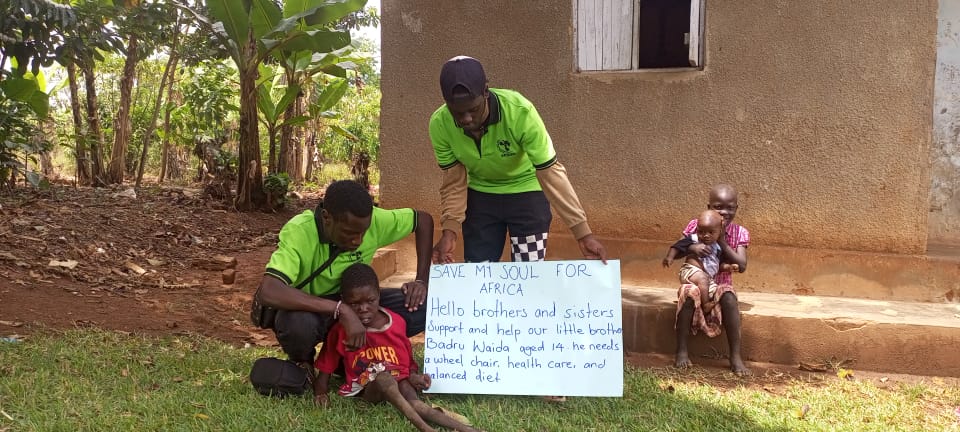 SAVE MY SOUL FOR
AFRICA
Hello brothers and sisters
Support and help our little brothe
Badru Waida aged 14. he needs
a wheel chair, health care, and
balanced diet
POWER